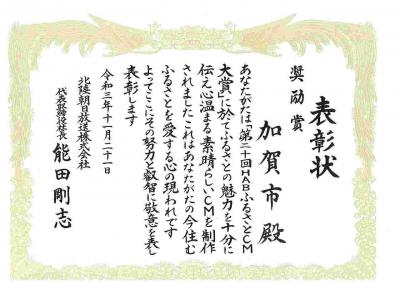 表彰状
奨励賞
加賀市殿
あなたがたは「第二十回HABふるさとCM
大賞」に於てふるさとの魅力を十分に
伝え心温まる素晴らしいCMを制作
されましたこれはあなたがたの今住む
ふるさとを愛する心の現われです
よってここにその努力と叡智に敬意を表し
表彰します
令和三年十一月二十一日
北陸朝日放送株式会社
代表取締役社長 能田剛志